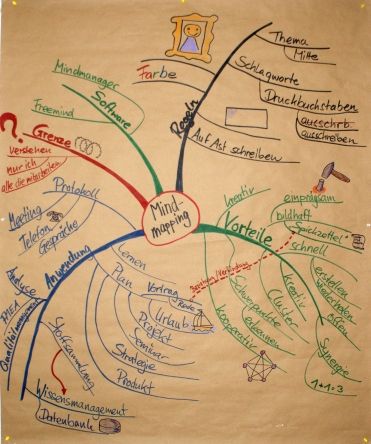 Mind-
mapping
Regeln
Farbe
Thema
Mitte
Schlagworte
Druckbuchstaben
ausschrb.
ausschreiben
Auf Ast schreiben
Software
Mindmanager
Freemind
?
Grenze
verstehen
nur ich
alle die mitarbeiten
Anwendung
Protokoll
Meeting
Telefon
Gespräche
Lernen
Plan
Vortrag
Rede
Urlaub
Projekt
Seminar
Strategie
Produkt
Analyse
IDEA
Qualitätsmanagement
Stoffsammlung
Wissensmanagement
Datenbank
Vorteile
kreativ
einprägsam
bildhaft
"Spickzettel"
schnell
erstellen
weiterfinden
offen
kreativ
Cluster
Schwerpunkte
erkennen
kooperativ
Synergie
1+1=3